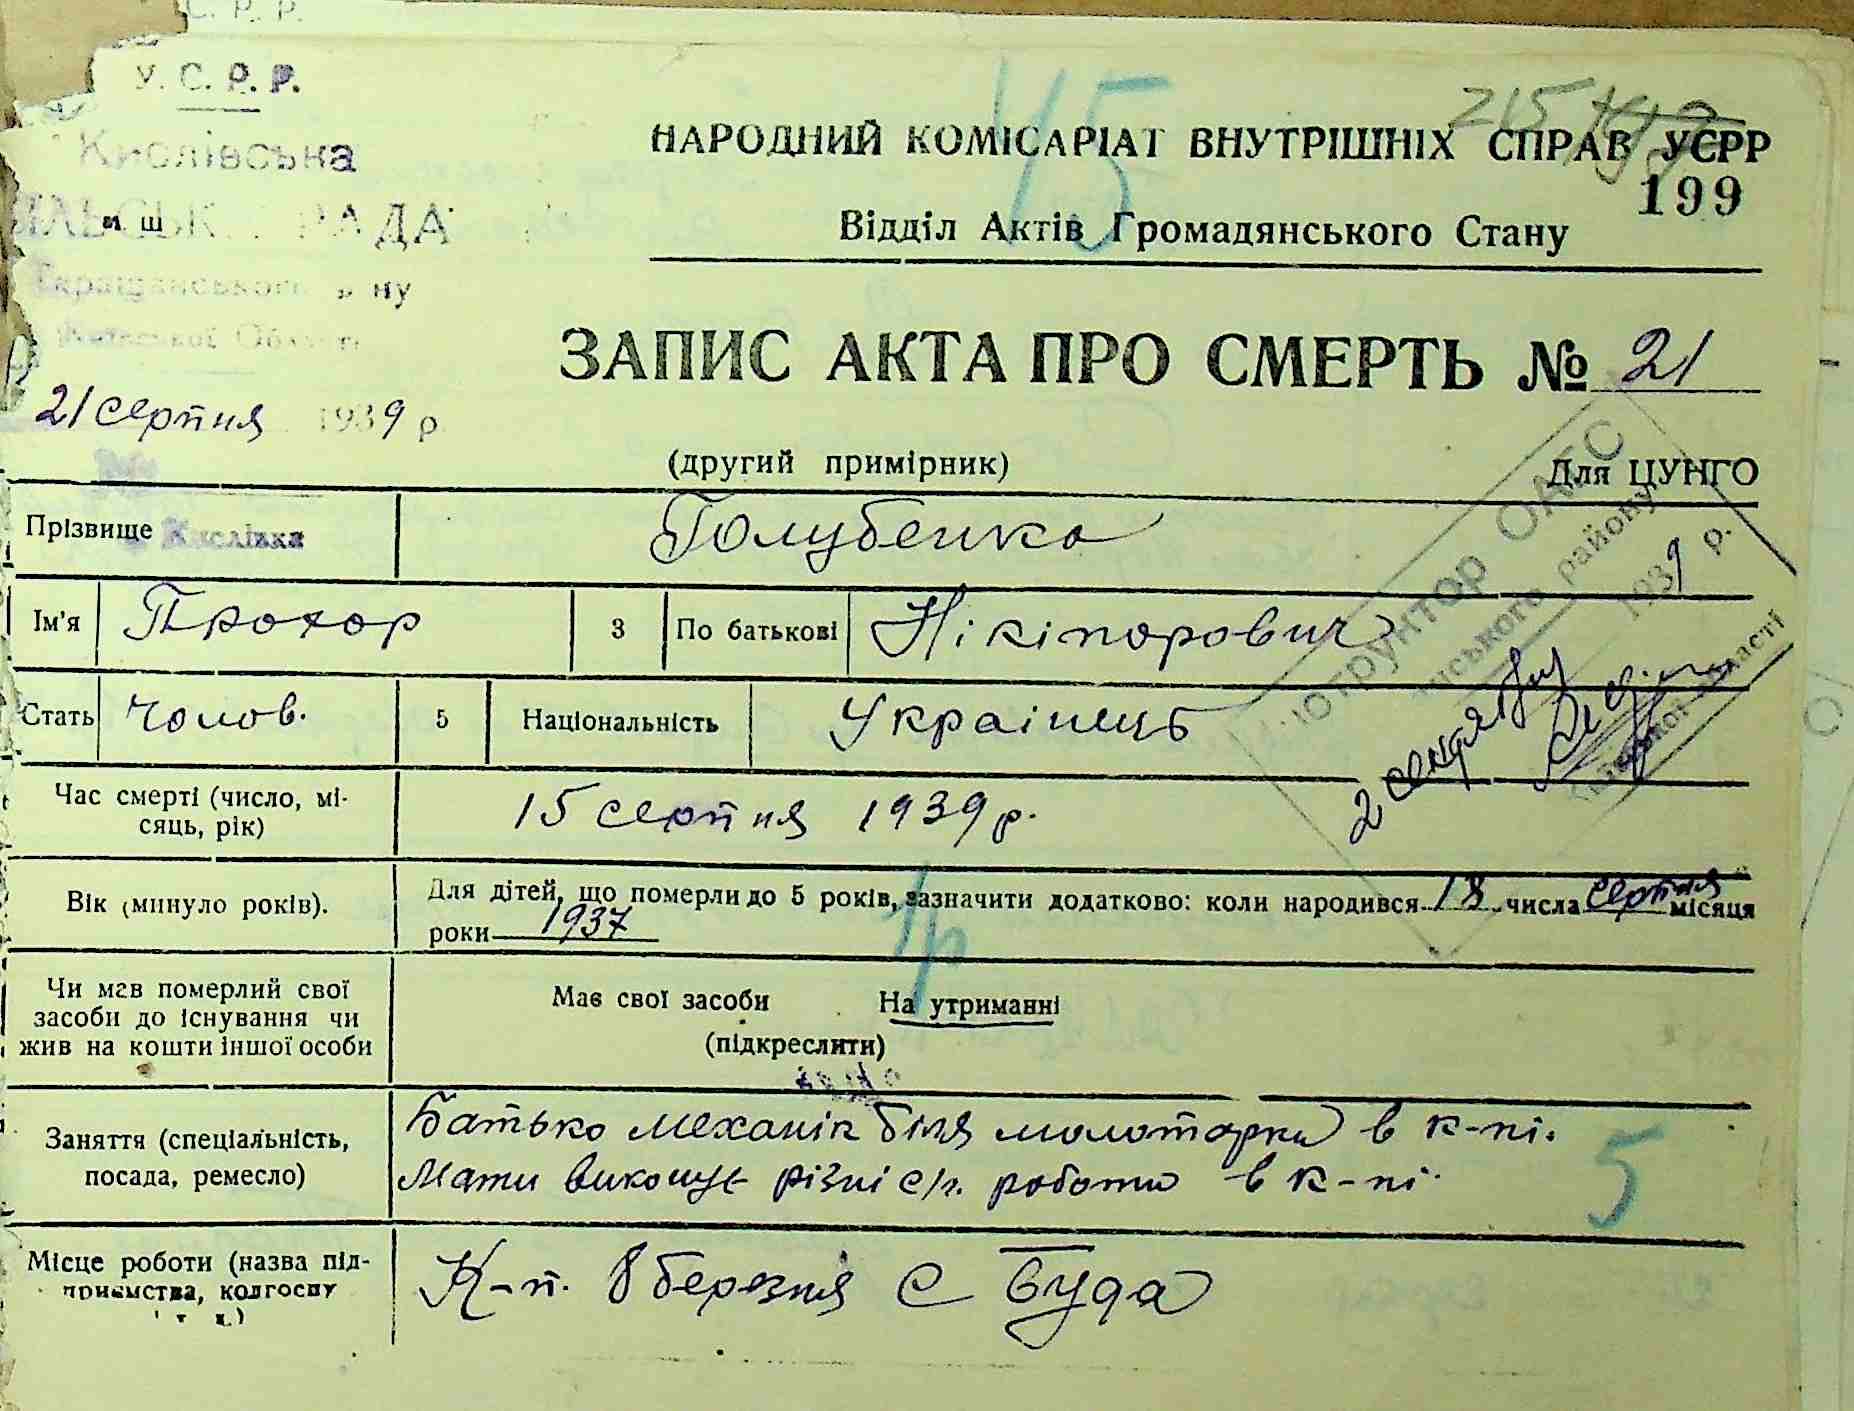 С. Р. Р.
У. С. Р. Р.
Кислівська
РАДА
ну
21 серпня 1939 р
Кислівка
45
215
НАРОДНИЙ КОМІСАРІАТ ВНУТРІШНІХ СПРАВ УСРР
199
Відділ Актів Громадянського Стану
ЗАПИС АКТА ПРО СМЕРТЬ № 21
(другий примірник) Для ЦУНГО
Прізвище Голубенко
Ім'я Прохор 3 По батькові Нікіпорович
Стать чолов. 5 Національність Українець
ОАГС
району
1939 р.
2
Час смерті (число, мі-
сяць, рік) 15 серпня 1939 р.
Вік (минуло років). Для дітей, що померли до 5 років, зазначити додатково: коли народився 18 числа серпня місяця
роки 1937
1р
Чи мав померлий свої
засоби до існування чи
жив на кошти іншої особи
Має свої засоби На утриманні
(підкреслити)
Заняття (спеціальність,
посада, ремесло)
Батько механік біля молотарки в к-пі.
Мати виконує різні с/г. роботи в к-пі.
5
Місце роботи (назва під-
приємства, колгоспу
і т. д.)
К-п. 8 березня с Буда